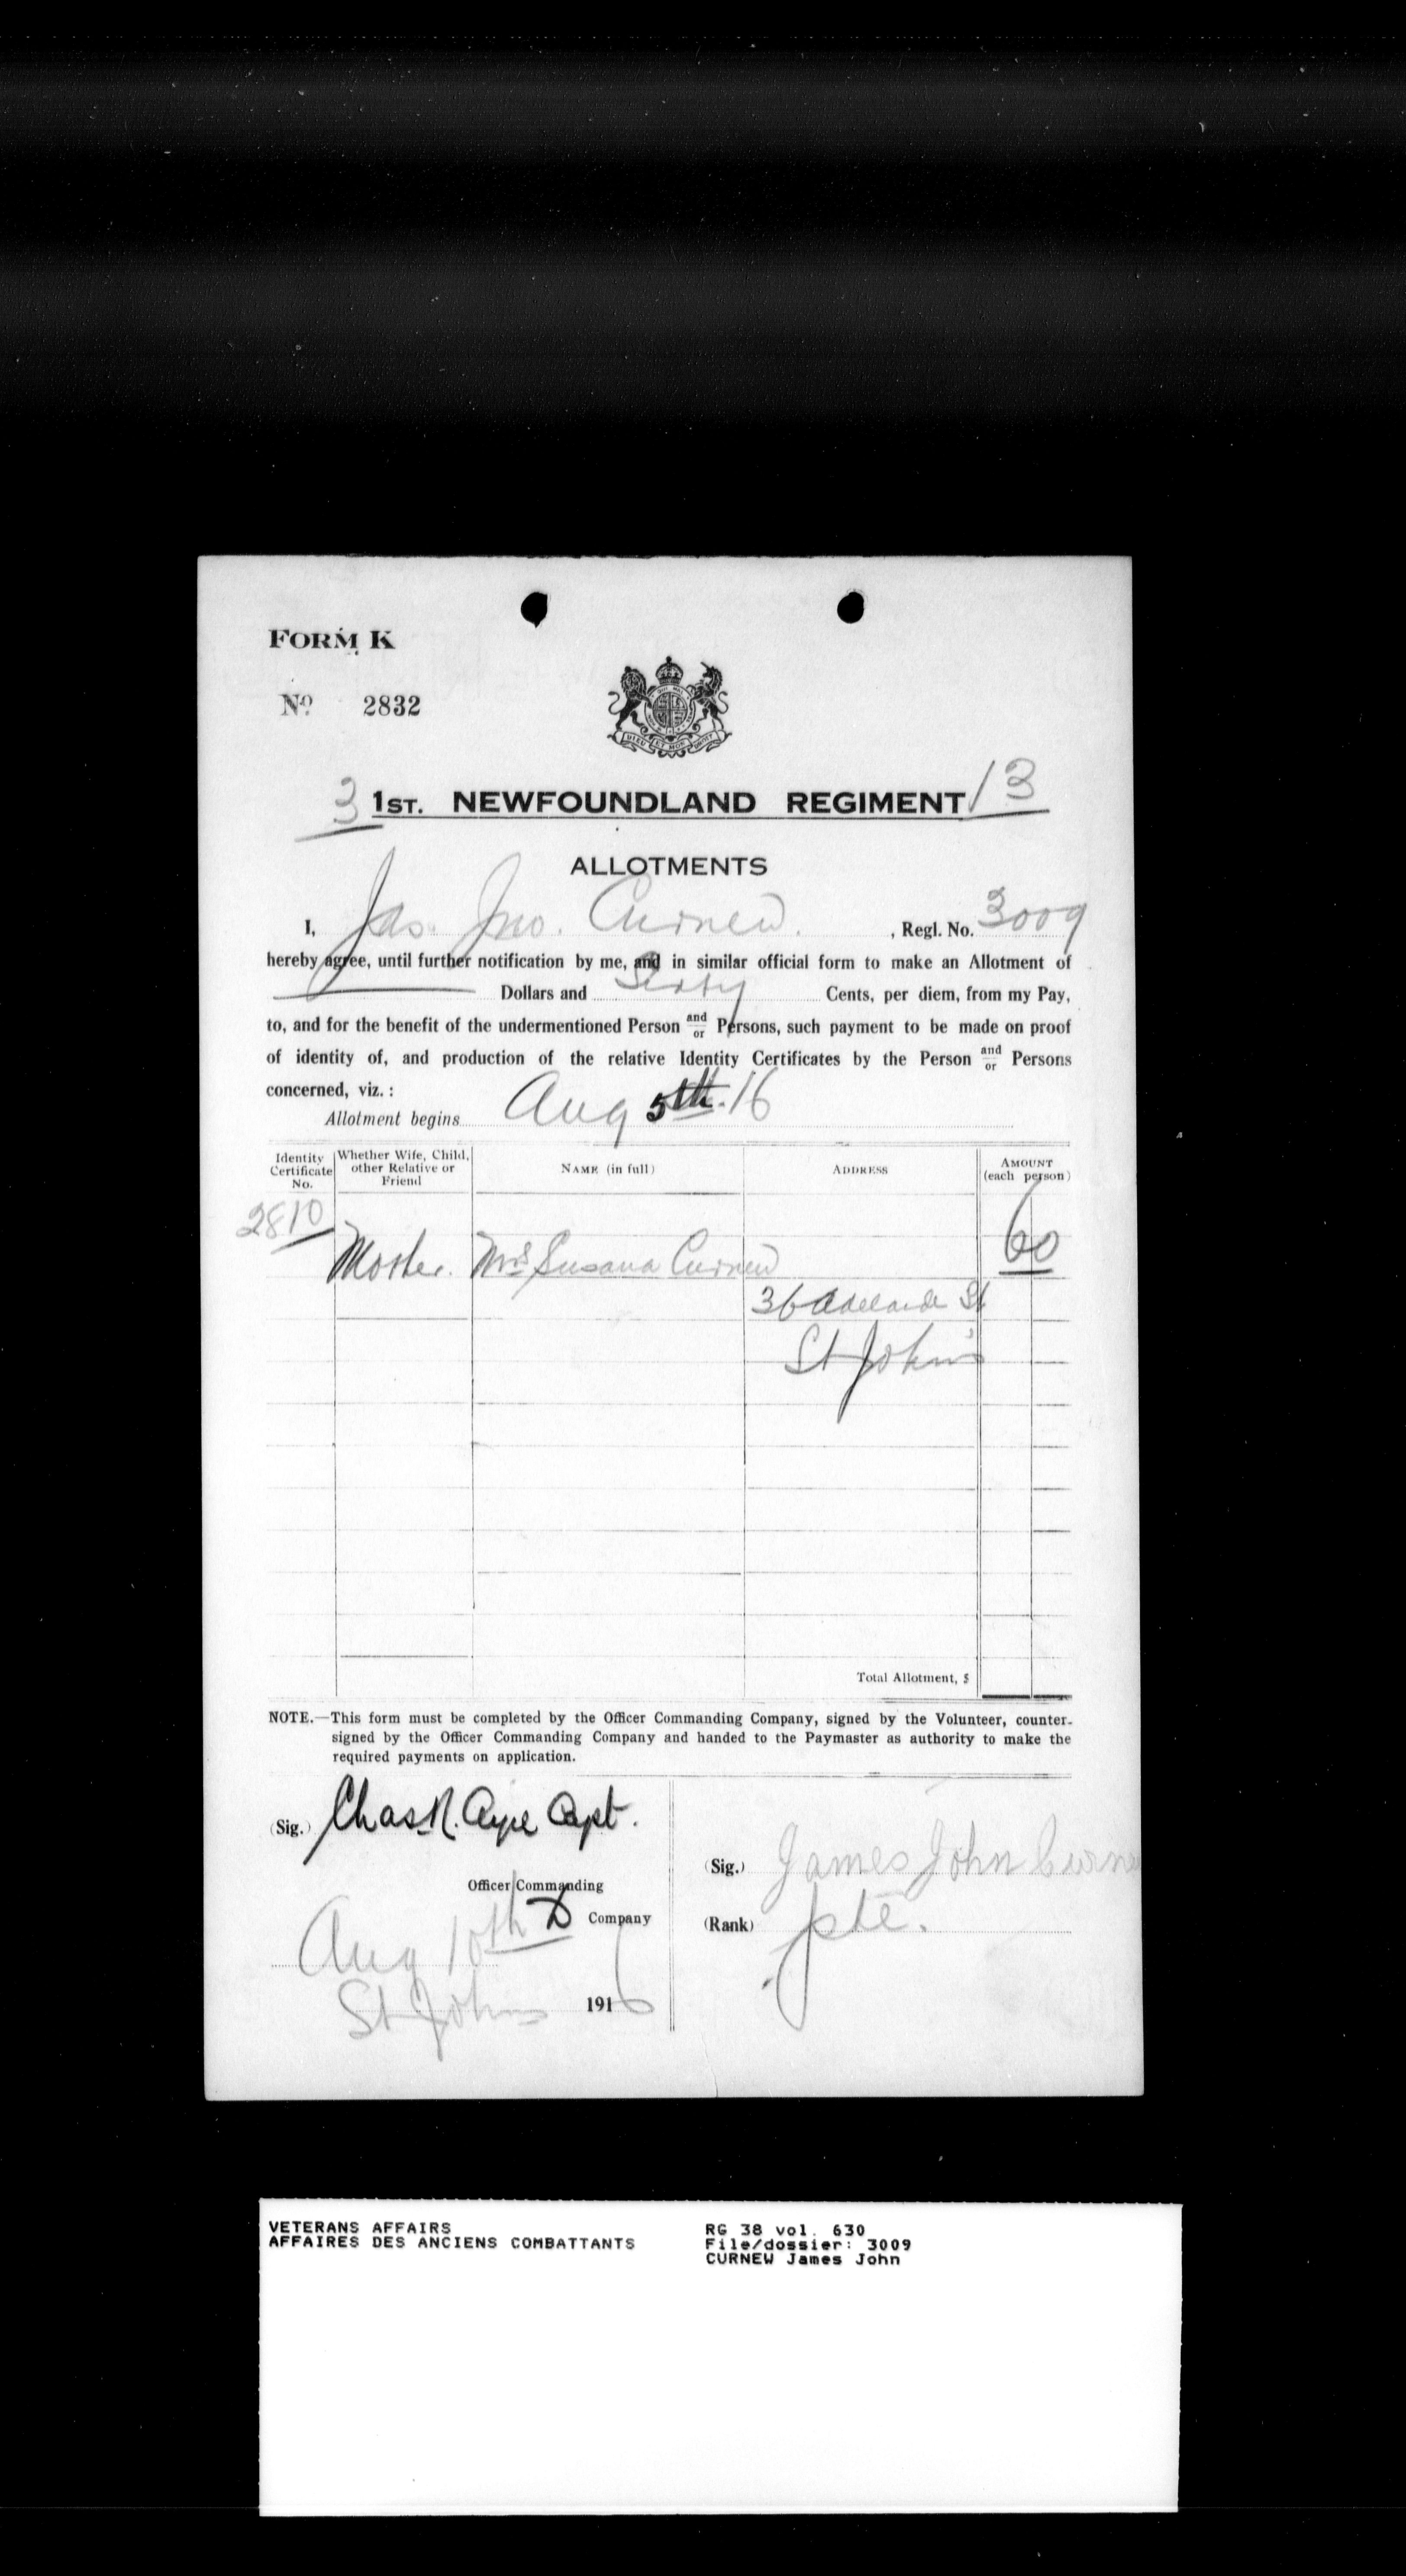 FORM K
No 2832
3 1ST. NEWFOUNDLAND REGIMENT 13
ALLOTMENTS
I, Jas. Jno. Curnew. , Regl. No. 3009
hereby agree, until further notification by me, and in similar official form to make an Allotment of
Dollars and Sixty Cents, per diem, from my Pay,
to, and for the benefit of the undermentioned Person and/or Persons, such payment to be made on proof
of identity of, and production of the relative Identity Certificates by the Person and/or Persons
concerned, viz. :
Allotment begins Aug 5th. 16
Identity Certificate No. Whether Wife, Child, other Relative or Friend NAME (in full) ADDRESS AMOUNT (each person)
2810
Mother. Mrs Susana Curnew 60
36 Adelaide St
St John's
Total Allotment, $
NOTE.—This form must be completed by the Officer Commanding Company, signed by the Volunteer, counter-
signed by the Officer Commanding Company and handed to the Paymaster as authority to make the
required payments on application.
(Sig.) Chas. R. Ayre Capt.
Officer Commanding
D Company
Aug 10th
St Johns 1916
(Sig.) James John Curnew
(Rank) pte.
VETERANS AFFAIRS
AFFAIRES DES ANCIENS COMBATTANTS
RG 38 vol. 630
File/dossier: 3009
CURNEW James John